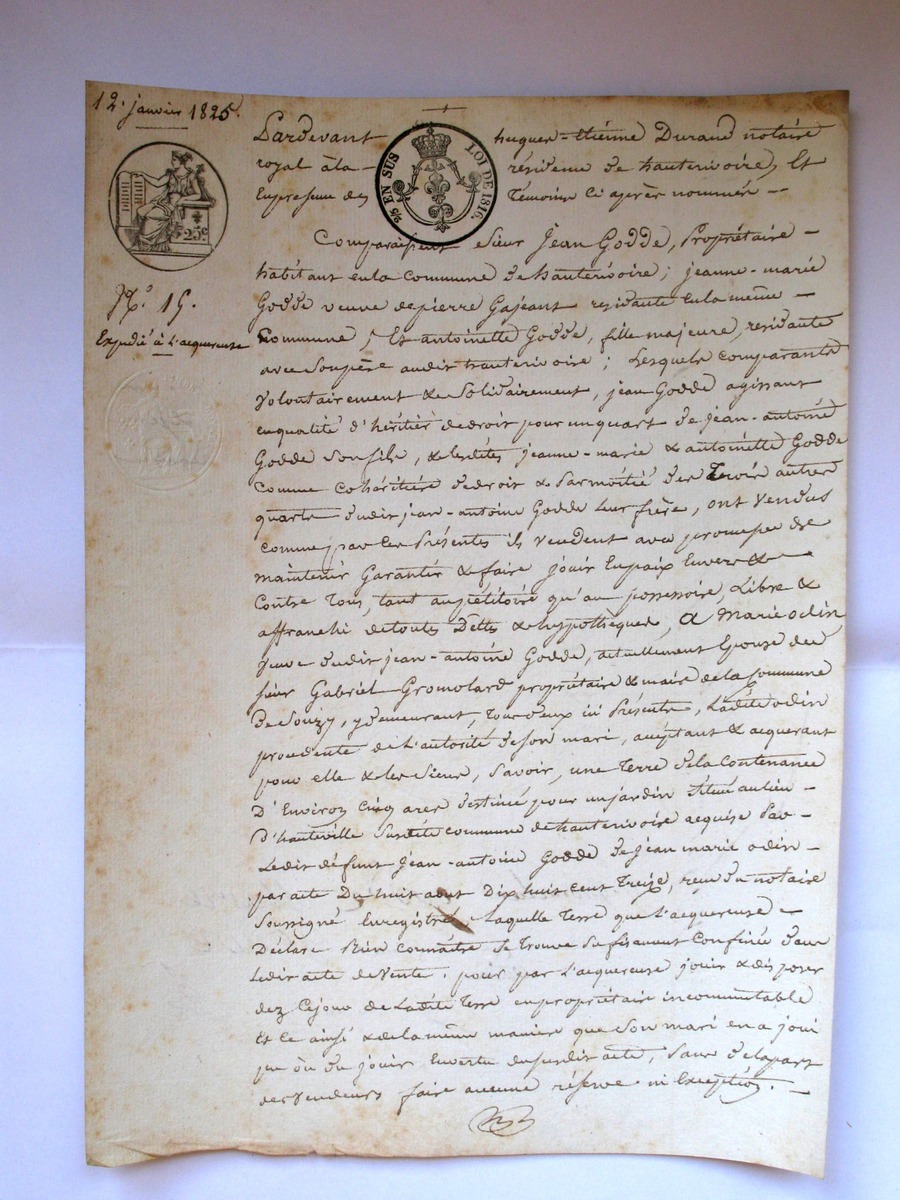 12. janvier 1825.
Pardevant hugues-étienne Durand notaire
royal à la résidence de hauterivoire, Et
En presence des Témoins Ci après nommés -
2/5 EN SUS LOI DE 1816.
25c
Comparaissent sieur Jean Godde, Propriétaire -
habitant en la Commune de hauterivoire; jeanne-marie
N.o 15.
Godde veuve de pierre Gajeant residante en la même -
Expedié à l'acquereuse
Commune; Et antoinette Godde, fille majeure, residante
avec Son père audit hauterivoire; Lesquels comparants
Volontairement & Solidairement, jean Godde agissant
en qualité d'héritier de droit pour un quart de jean-antoine
Godde Son fils, & lesdites jeanne-marie & antoinette Godde
comme cohéritière de droit & Par moitié des Trois autres
quarts dudit jean-antoine Godde Leur frère, ont Vendus
comme par Ces Présentes ils vendent avec promesse de
maintenir Garantir & faire jouir En paix Envers &
Contre Tous, tant au pétitoire qu'au possessoire, Libre &
affranchi de toutes Dettes & hypothèques, A Marie odin
veuve dudit jean-antoine Godde, actuellement Epouse du
sieur Gabriel Gromolard propriétaire & maire de la Commune
De Souzy, y demeurant, Tous deux ici Présents, Ladite odin
procedente de L'autorité de Son mari, acceptant & acquerant
pour elle & les Siens, Savoir, une Terre de la Contenance
D'Environ Cinq ares destinée pour un jardin Située au lieu -
D'hauteville Susdite commune de hauterivoire acquise Par -
Ledit défunt jean-antoine Godde de jean marie odin -
par acte Du huit aout Dix huit Cent Treize, reçu du notaire
Soussigné Enregistré, Laquelle Terre que L'acquereuse -
Déclare Bien Connaître Se Trouve Sufisament Confinée dans
Ledit acte de Vente, pour par L'acquereuse jouir & disposer
dez Cejour de Ladite Terre en propriétaire incommutable
Et Ce ainsi & de la même manière que Son mari en a joui
pu ou du jouir En vertu du susdit acte, Sans de la part
des Vendeurs faire aucune réserve ni Exception. -